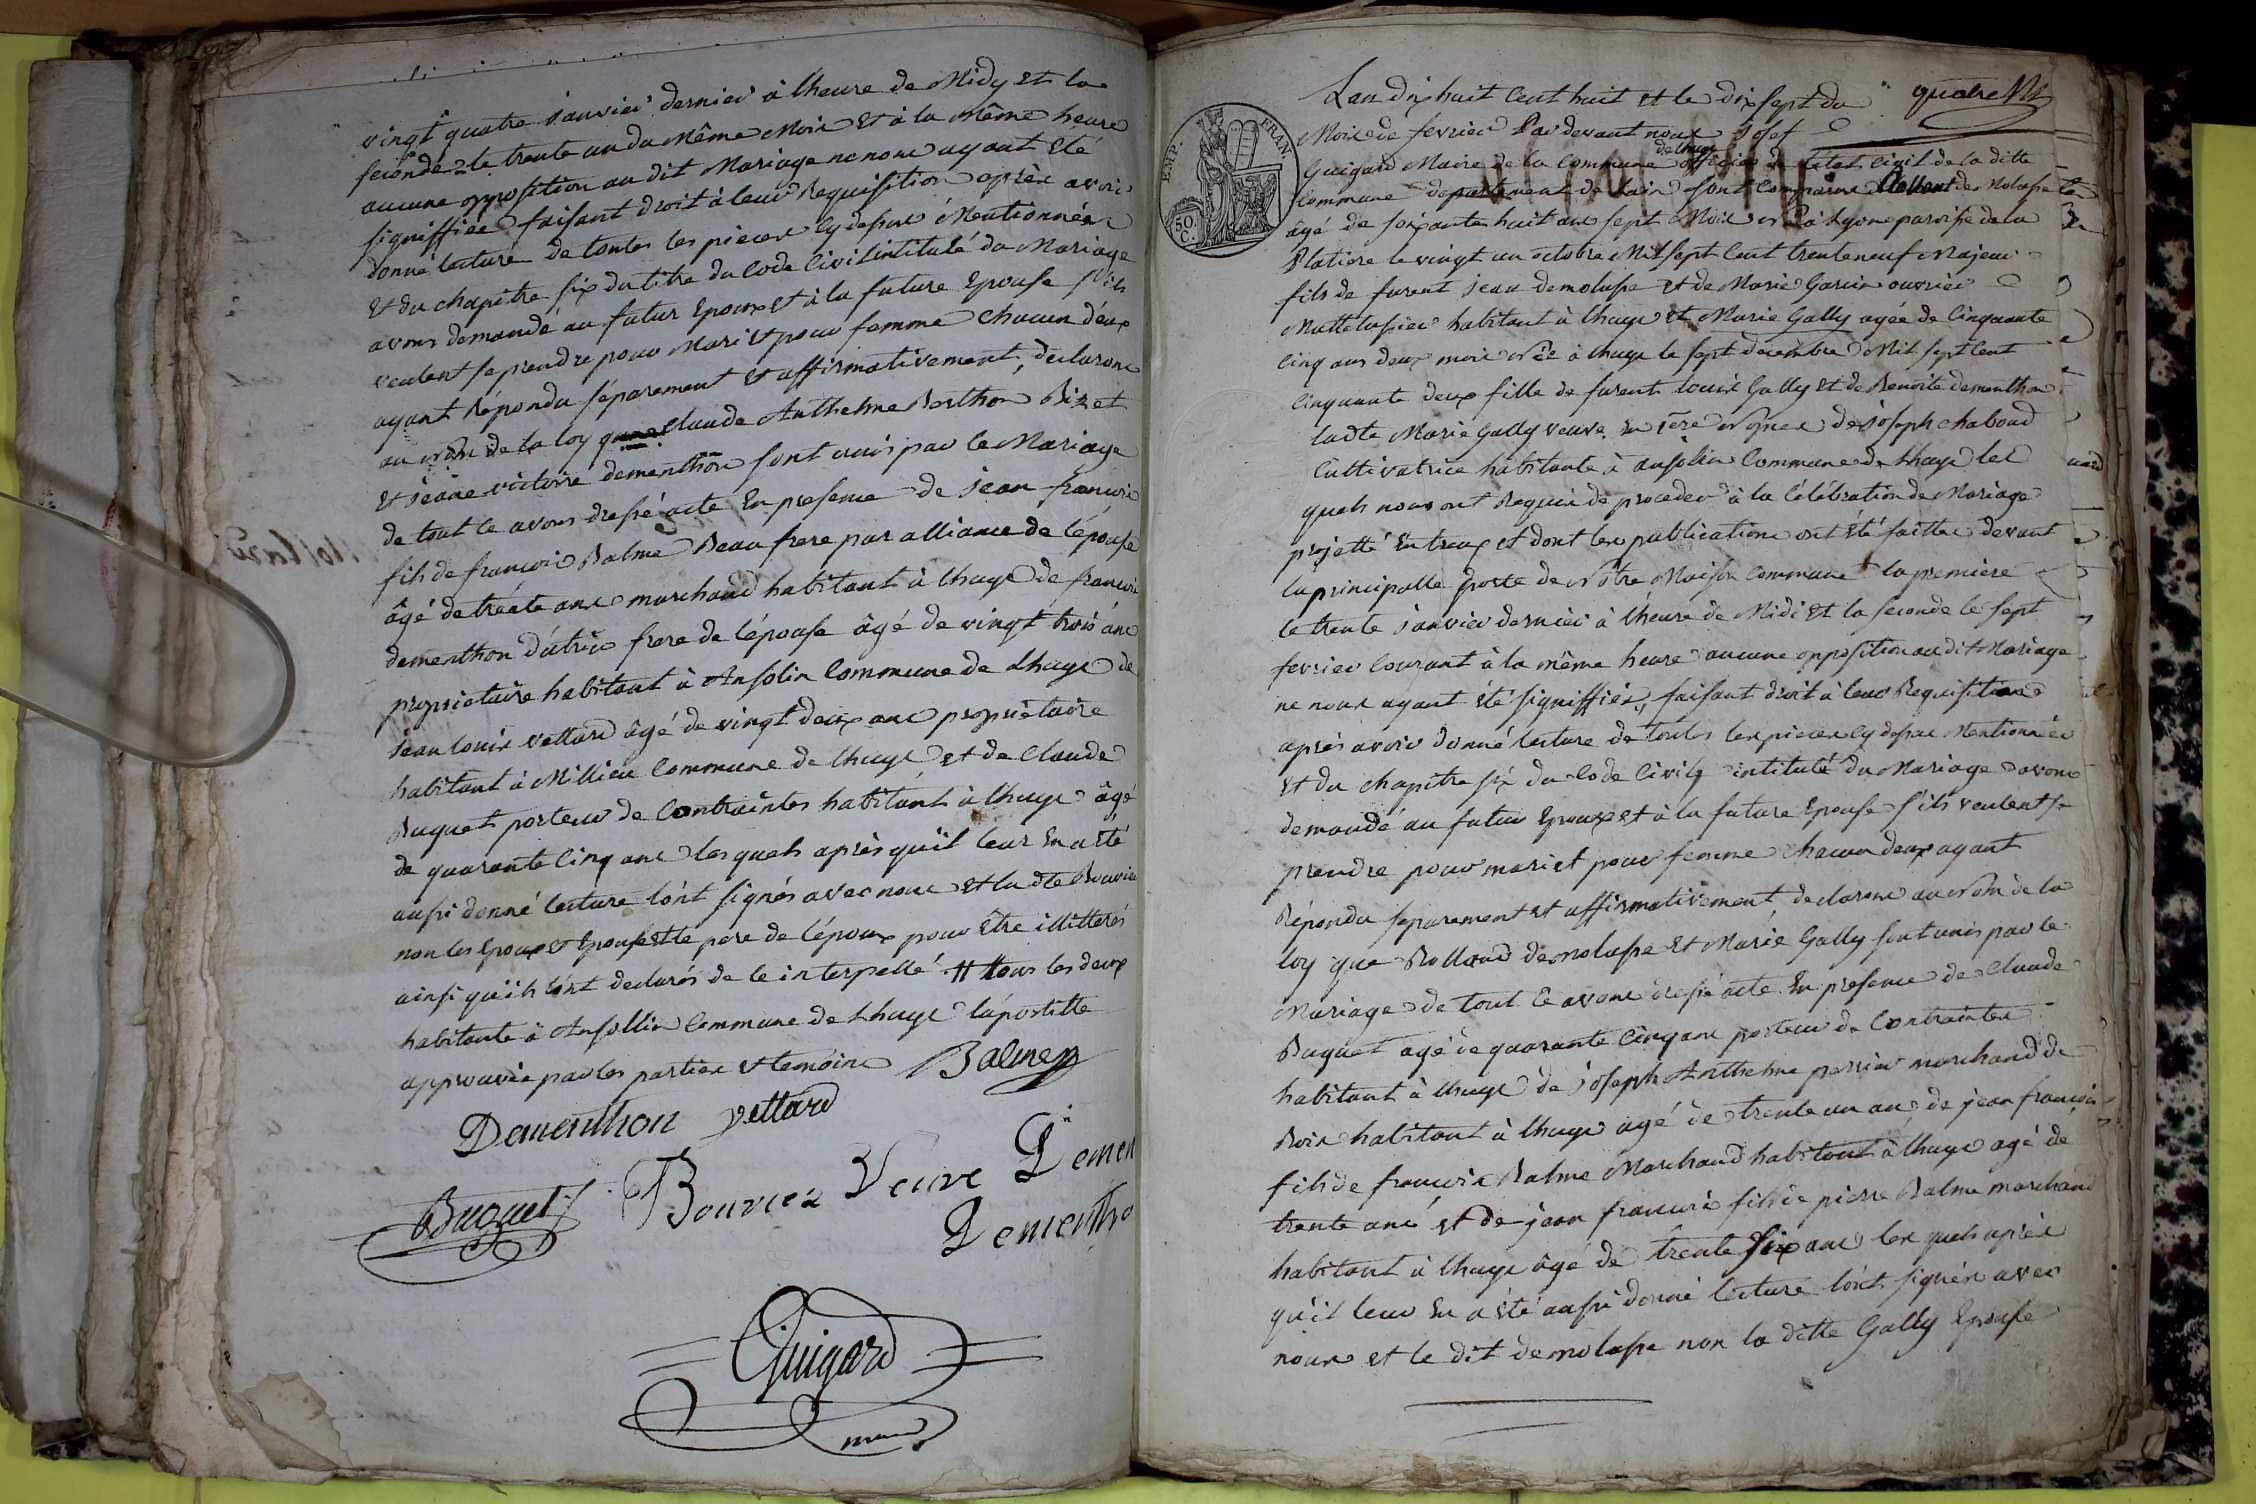 vingt quatre Janvier dernier à lheure de Midy et la
seconde le trente un du Même Mois et à la Même heure
aucune opposition au dit Mariage ne nous ayant été
signiffiée faisant droit à leur Requisition après avoir
donné lecture de toutes les pieces cy dessus Mentionnées
et du chapitre six du titre du Code Civil intitulé du Mariage
avons demandé au futur Epoux et à la future Epouse s'ils
veulent se prendre pour Mari et pour femme chacun d'eux
ayant Répondu séparement et affirmativement, declarons
au nom de la loy que Claude Anthelme Berthon Bizet
et Jeane victoire dementhon sont unis par le Mariage
de tout ce avons dressé acte En presence de jean françois
fils de françois Balme Beau frere par alliance de l'épouse
âgé de trente ans marchand habitant à lhuys de françois
dementhon d'utrix frere de l'épouse âgé de vingt trois ans
propriétaire habitant à Ansolin Commune de Lhuys de
jean louis vettard âgé de vingt deux ans propriétaire
habitant à Millieu Commune de lhuys et de Claude
Buguet porteur de Contraintes habitant à lhuys âgé
de quarante Cinq ans lesquels après qu'il leur En a été
aussi donné lecture l'ont signés avec nous et la dte Bouvier
non les Epoux et Epouse et le pere de l'époux pour être illitterés
ainsi qu'ils l'ont declarés de ce interpellé # tous les deux
habitants à Ansollin Commune de Lhuys l'apostille
approuvée par les parties et temoins Balme
Dementhon vettard
Buguet Bouvier Veuve Demen
Dementho
Guigard
maire
quatre
Lan dix huit Cent huit et le dix sept du
Mois de fevrier Par devant nous Josef
de lhuys
Guigard Maire de la Commune officier de l'état Civil de la ditte
Commune departement de lain sont Comparus Rolland demolasse
âgé de soixante huit ans sept Mois né à Lyon paroisse de la
Platiere le vingt un octobre Mil sept Cent trente neuf Majeur
fils de furent jean demolasse et de Marie Garin ouvrier
Mattelassier habitant à lhuys et Marie Gally agée de Cinquante
Cinq ans deux mois née à lhuys le sept decembre Mil sept Cent
Cinquante deux fille de furent louis Gally et de Benoite dementhon
ladte Marie Gally veuve En 1ere Noçes de joseph chaboud
Cultivatrice habitante à ansolin Commune de Lhuys les
quels nous ont Requis de proceder à la Célébration de Mariage
projetté Entreux et dont les publications ont été faittes devant
la principalle porte de Nôtre Maison Commune la premiere
le trente janvier dernier à lheure de Midi et la seconde le sept
fevrier Courant à la même heure aucune opposition au dit Mariage
ne nous ayant été signiffiée, faisant droit à leur Requisition
après avoir donné lecture de toutes les pieces cy dessus Mentionnées
et du chapitre six du Code Civil intitulé du Mariage avons
demandé au futur Epoux et à la future Epouse s'ils veulent se
prendre pour mari et pour femme chacun deux ayant
Répondu separement et affirmativement declarons au nom de la
loy que Rolland demolasse et Marie Gally sont unis par le
Mariage de tout ce avons dressé acte En presence de Claude
Buguet agé de quarante Cinq ans porteur de Contraintes
habitant à lhuys de joseph Anthelme perrier marchand de
Bois habitant à lhuys agé de trente un ans de jean françois
fils de françois Balme Marchand habitant à lhuys agé de
trente ans et de jean françois fils de pierre Balme marchand
habitant à lhuys âgé de trente six ans les quels après
qu'il leur En a été aussi donné lecture l'ont signés avec
nous et le dit demolasse non la ditte Gally Epouse
EMP. FRAN.
50. C.